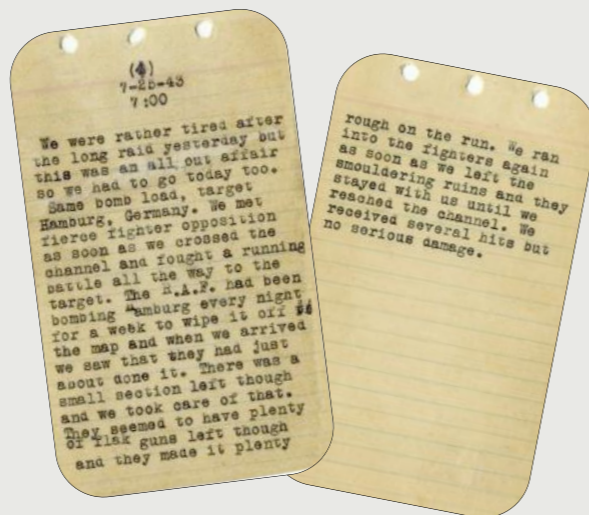 (4)
7-25-43
7:00
We were rather tired after
the long raid yesterday but
this was an all out affair
so we had to go today too.
Same bomb load, target
Hamburg, Germany. We met
fierce fighter opposition
as soon as we crossed the
channel and fought a running
battle all the way to the
target. The R.A.F. had been
bombing Hamburg every night
for a week to wipe it off
the map and when we arrived
we saw that they had just
about done it. There was a
small section left though
and we took care of that.
They seemed to have plenty
of flak guns left though
and they made it plenty
rough on the run. We ran
into the fighters again
as soon as we left the
smouldering ruins and they
stayed with us until we
reached the channel. We
received several hits but
no serious damage.